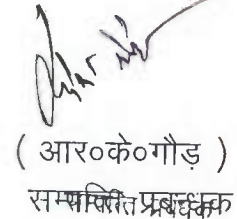 ( आर०के०गौड़ )
सम्पत्ति प्रबन्धक